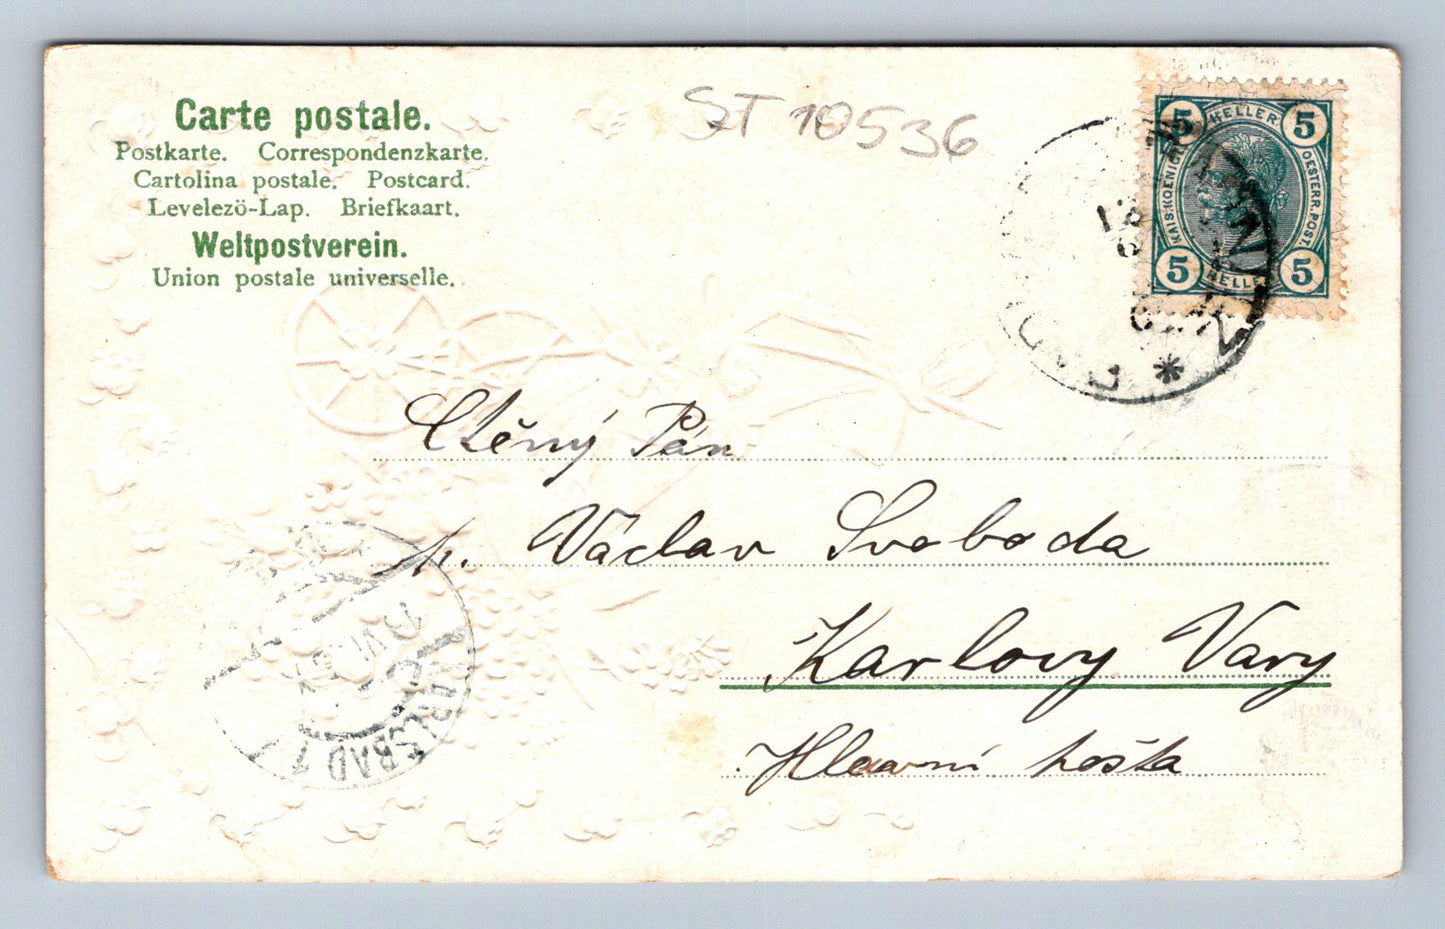 Carte postale.
Postkarte. Correspondenzkarte.
Cartolina postale. Postcard.
Levelező-Lap. Briefkaart.
Weltpostverein.
Union postale universelle.
ST 10536
5 HELLER 5
KAIS. KOENIGL. OESTERR. POST.
5 HELLER 5
Ctěný Pán
p. Václav Svoboda
Karlovy Vary
Hlavní pošta
KARLSBAD 1